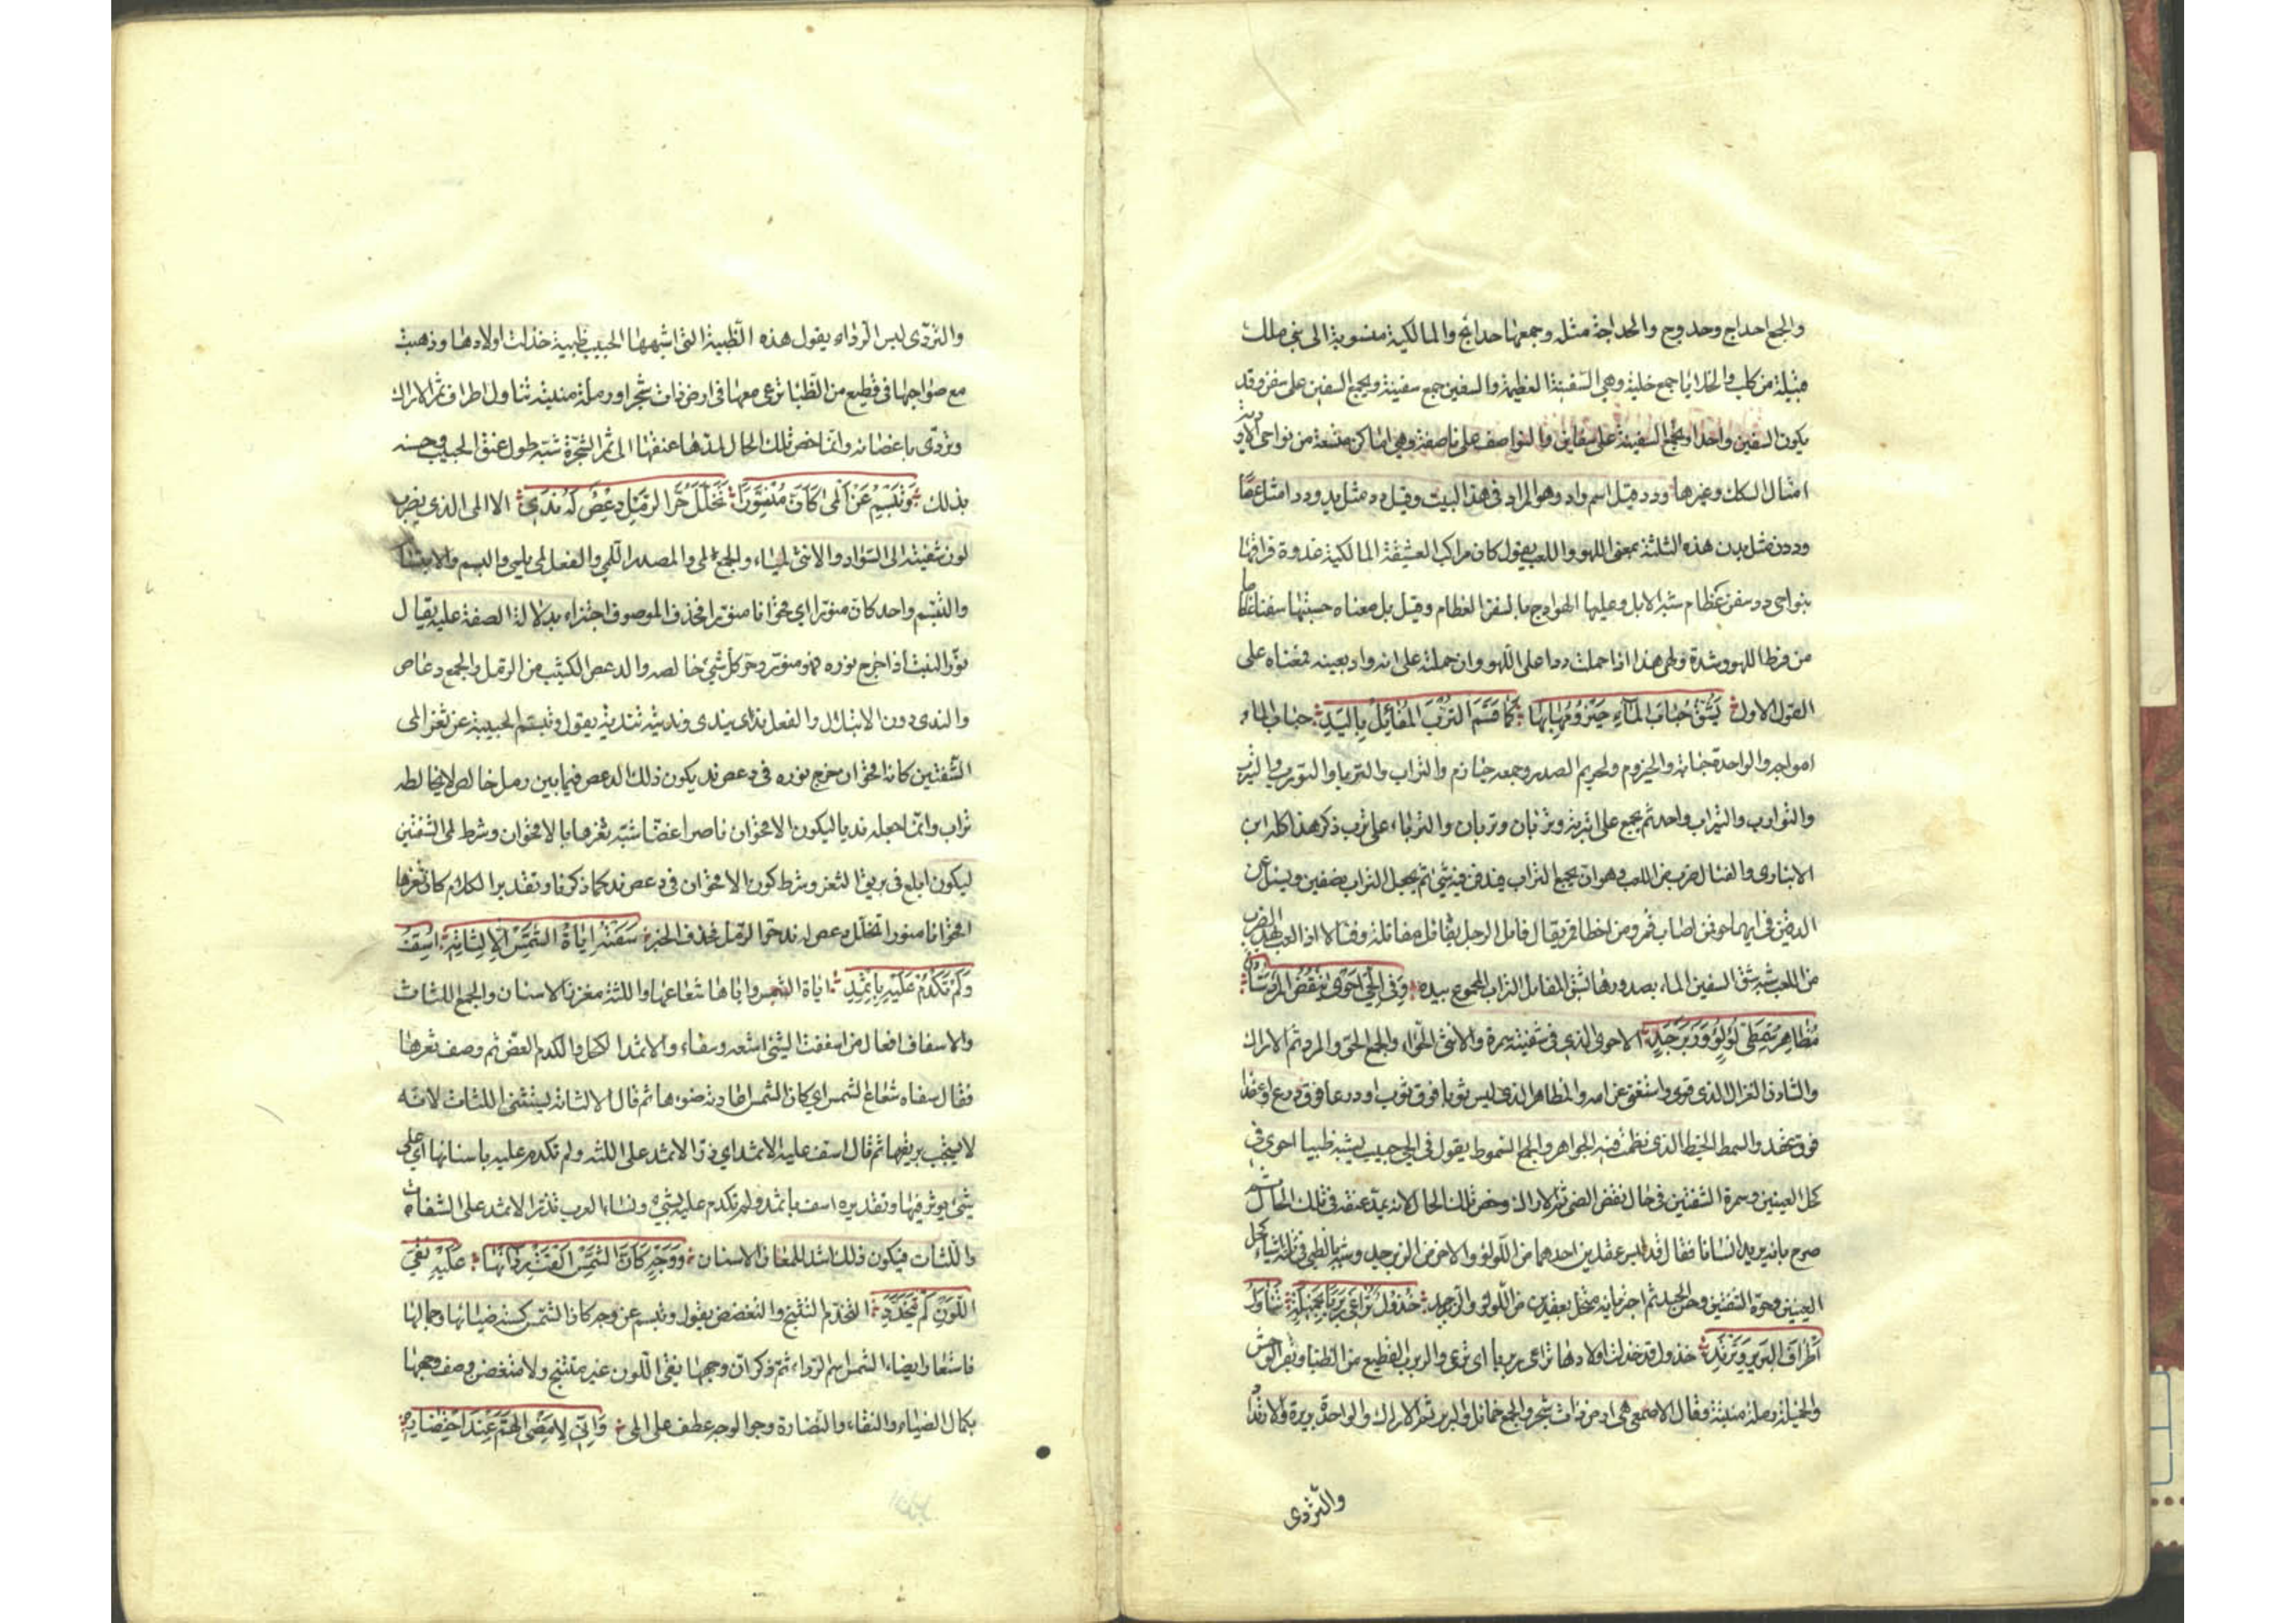 والجمع احداج وحدوج والحداجة مثله وجمعها حدائج والمالكية منسوبة الى بني ملك
قبيلة من كلب والخلايا جمع خلية وهي السفينة العظيمة والسفين جمع سفينة ويجمع السفين على سفن وقد
يكون السفين واحدا ويجمع السفينة على سفاين والنواصف على ناصفة وهي اماكن متسعة من نواحي الاودية
امثال السكك وغيرها ودد قيل اسم واد وهو المراد في هذا البيت وقيل دد مثل يد وددا مثل عصا
وددن مثل بدن هذه الثلثة بمعنى اللهو واللعب يقول كان مراكب العشيقة المالكية غدوة فراقها
بنواحي دد سفن عظام شبه الابل وعليها الهوادج بالسفن العظام وقيل بل معناه حسبتها سفنا عظاما
من فرط اللهو وشدة ولهى هذا اذا حملت ددا على اللهو وان حملته على انه واد بعينه فمعناه على
القول الاول يَشُقُّ حُبَابَ المَآءِ حَيْزُومُهَا بِهَا كَمَا قَسَمَ التُّرْبَ المُفَائِلُ بِاليَدِ حباب الماء
امواجه والواحدة حبابة والحيزوم والحريم الصدر وجمعه حيازم والتراب والترباء والتورب والتيرب
والتوارب والتيراب واحد ثم يجمع على اتربة وتربان وتربان والترباء على ترب ذكر هذا كله ابن
الانباري والفئال ضرب من اللعب وهو ان يجمع التراب فيدفن فيه شيء ثم يجعل التراب نصفين ويسئل عن
الدفين في ايهما هو فمن اصاب قمر ومن اخطا قمر يقال فايل الرجل يفايل مفائلة وفئالا اذا لعب بهذا الضرب
من اللعب شبه شق السفين الماء بصدورها بشق المفايل التراب المجموع بيده وَفِي الحَيِّ اَحْوَى يَنْفُضُ المَرْدَ شَادِنٌ
مُظَاهِرُ سِمْطَيْ لُؤْلُؤٍ وَزَبَرْجَدٍ الاحوى الذي في شفتيه سمرة والانثى الحواء والجمع الحو والمرد ثمر الاراك
والشادن الغزال الذي قوى واستغنى عن امه والمظاهر الذي لبس ثوبا فوق ثوب او درعا فوق درع او عقدا
فوق عقد والسمط الخيط الذي نظمت فيه الجواهر والجمع السموط يقول في الحي حبيب يشبه ظبيا احوى في
كحل العينين وسمرة الشفتين في حال نفض الضبي ثمر الاراك وخص تلك الحال لانه يمد عنقه في تلك الحال ثم
صرح بانه يريد انسانا فقال قد لبس عقدين احدهما من اللؤلؤ والاخر من الزبرجد وشبه بالظبي في ثلثة اشياء كحل
العينين وحوة الشفتين وحسن الجيد ثم اخبر انه متحل بعقدين من اللؤلؤ والزبرجد خَذُولٌ تُرَاعِي رَبْرَبًا بِخَمِيلَةٍ تَنَاوَلُ
اَطْرَافَ البَرِيرِ وَتَرْتَدِي خذول قد خذلت اولادها تراعي ربربا اي ترعى والربرب القطيع من الظباء وبقر الوحش
والخميلة رملة منبتة وقال الاصمعي هي ارض ذات شجر والجمع خمائل والبرير ثمر الاراك والواحدة بريرة والارتداء
والتردى
والتردى لبس الرداء يقول هذه الظبية التي اشبهها الحبيب ظبية خذلت اولادها وذهبت
مع صواحبها في قطيع من الظباء ترعى معها في ارض ذات شجر او رملة منبتة تتناول اطراف ثمر الاراك
وتردى باغصانه وانما خص تلك الحال لمدها عنقها الى ثمر الشجرة شبه طول عنق الحبيب وحسنه
بذلك وَتَبْسِمُ عَنْ اَلْمَى كَاَنَّ مُنَوَّرًا تَخَلَّلَ حُرَّ الرَّمْلِ دِعْصٌ لَهُ نَدِي الالمى الذي يضرب
لون شفتيه الى السواد والانثى لمياء والجمع لمى والمصدر اللمى والفعل لمى يلمى والبسم والابتسام
والتبسم واحد كان منورا اي اقحوانا منورا فحذف الموصوف اجتزاء بدلالة الصفة عليه يقال
نور النبت اذا خرج نوره فهو منور وحر كل شيء خالصه والدعص الكثيب من الرمل والجمع دعاص
والندى دون الابتلال والفعل ندى يندى وندیته تندية يقول وتبسم الحبيبة عن ثغر المى
الشفتين كانه اقحوان مخرج نوره في دعص ند يكون ذلك الدعص فيما بين رمل خالص لا يخالطه
تراب وانما جعله نديا ليكون الاقحوان ناصرا غضا شبه ثغرها بالاقحوان وشرط لمى الشفتين
ليكون ابلغ في بريق الثغر وشرط كون الاقحوان في دعص ند كما ذكرنا وتقدير الكلام كان ثغرها
اقحوانا منورا تخلل دعص له ند حر الرمل فحذف الخبر سَقَتْهُ اِيَاةُ الشَّمْسِ اِلَّا لِثَاتِهِ اُسِفَّ
وَلَمْ تَكْدِمْ عَلَيْهِ بِاِثْمِدِ اياة الشمس واياها شعاعها واللثة مغرز الاسنان والجمع اللثات
والاسفاف افعال من اسففت الشيء اسفه وسفاء والاثمد الكحل والكدم العض ثم وصف ثغرها
فقال سقاه شعاع الشمس اي كان الشمس اعادته ضوءها ثم قال الا لثاته ليستثنى اللثات لانه
لا يستحب بريقها ثم قال اسف عليه الاثمد اي ذر الاثمد على اللثة ولم تكدم عليه باسنانها اي على
شيء يوثر فيها وتقديره اسف باثمد ولم تكدم عليه بشيء ونساء العرب تذر الاثمد على الشفاه
واللثات فيكون ذلك اشد للمعان الاسنان وَوَجْهٍ كَاَنَّ الشَّمْسَ اَلْقَتْ رِدَائَهَا عَلَيْهِ نَقِيِّ
اللَّوْنِ لَمْ يَتَخَدَّدِ التخدد التشنج والتغضض يقول وتبسم عن وجه كان الشمس كسته ضيائها وجمالها
فاستعار لضياء الشمس اسم الرداء ثم ذكر ان وجهها نقى اللون غير متشنج ولا متغضن وصف وجهها
بكمال الضياء والنقاء والنضارة وجر الوجه عطف على المى وَاِنِّي لَاُمْضِي الهَمَّ عِنْدَ احْتِضَارِهِ